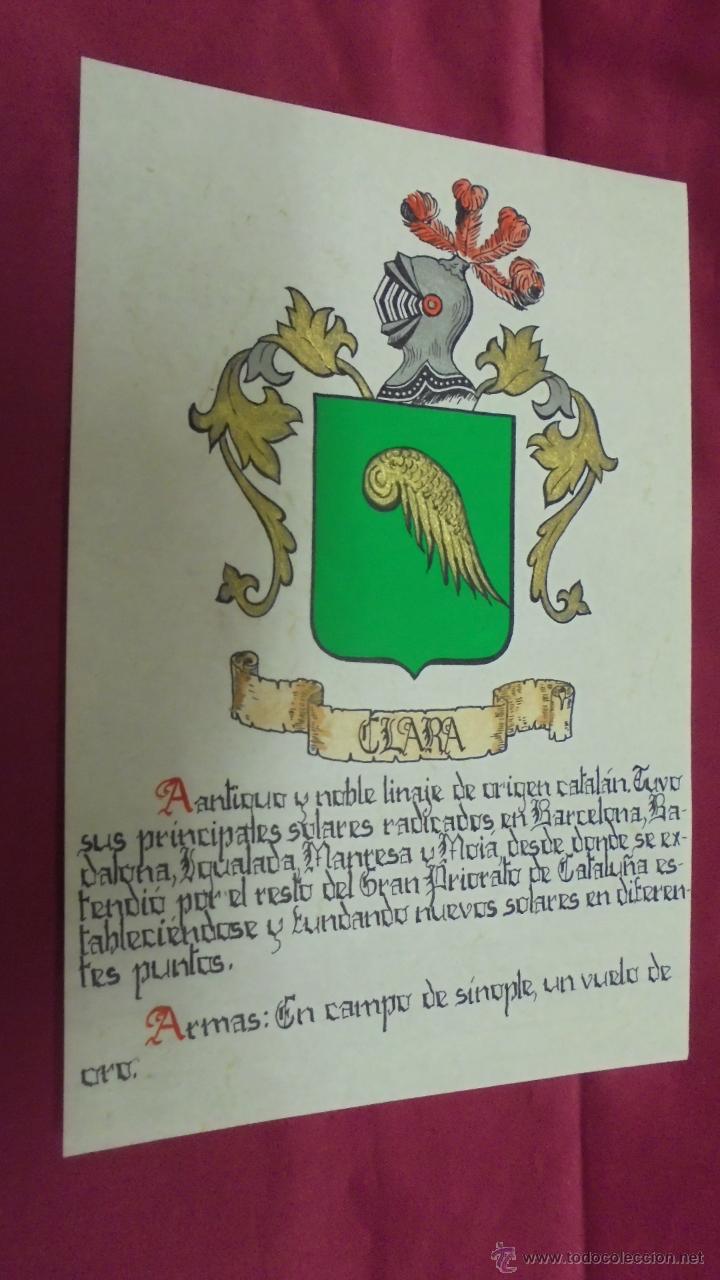 CLARA
Aantiguo y noble linaje de origen catalán. Tuvo
sus principales solares radicados en Barcelona, Ba-
dalona, Igualada, Manresa y Moiá, desde donde se ex-
tendió por el resto del Gran Priorato de Cataluña es-
tableciéndose y fundando nuevos solares en diferen-
tes puntos.
Armas: En campo de sínople, un vuelo de
oro.
www.todocoleccion.net